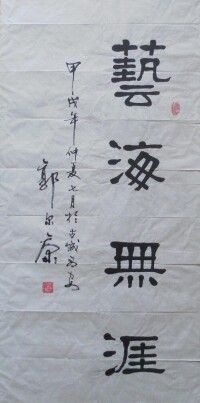 藝海無涯
甲戌年仲夏七月於古城西安
郭尔康